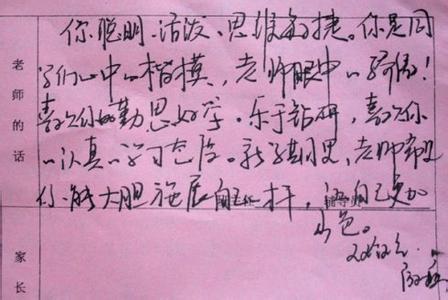 你聪明、活泼、思维敏捷。你是同
学们心中的楷模，老师眼中的骄傲！
喜欢你的勤思好学、乐于钻研，喜欢你
的认真的学习态度。新学期里，老师希望
你能大胆施展自己 才，让自己更加
出色。
老师的话
家长